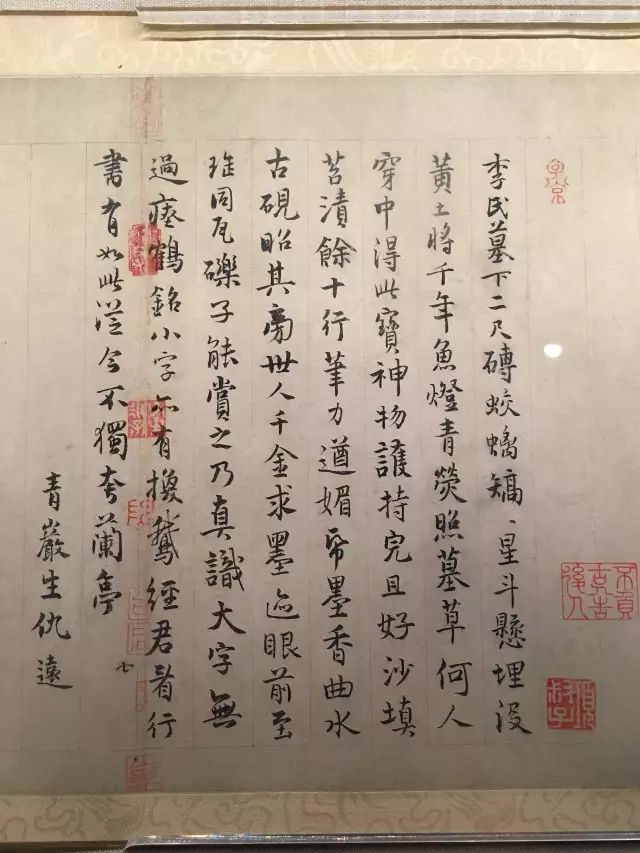 李氏墓下二尺磚蛟螭矯〻星斗懸埋没
黄土將千年魚燈青熒照墓草何人
穿中得此寶神物護持完且好沙填
苔漬餘十行筆力遒媚帋墨香曲水
古硯昭其旁世人千金求墨迹眼前至
珤同瓦礫子能賞之乃真識大字無
過瘞鶴銘小字亦有換鵝經君看行
書有如此從今不獨夸蘭亭
七
青巖生仇遠